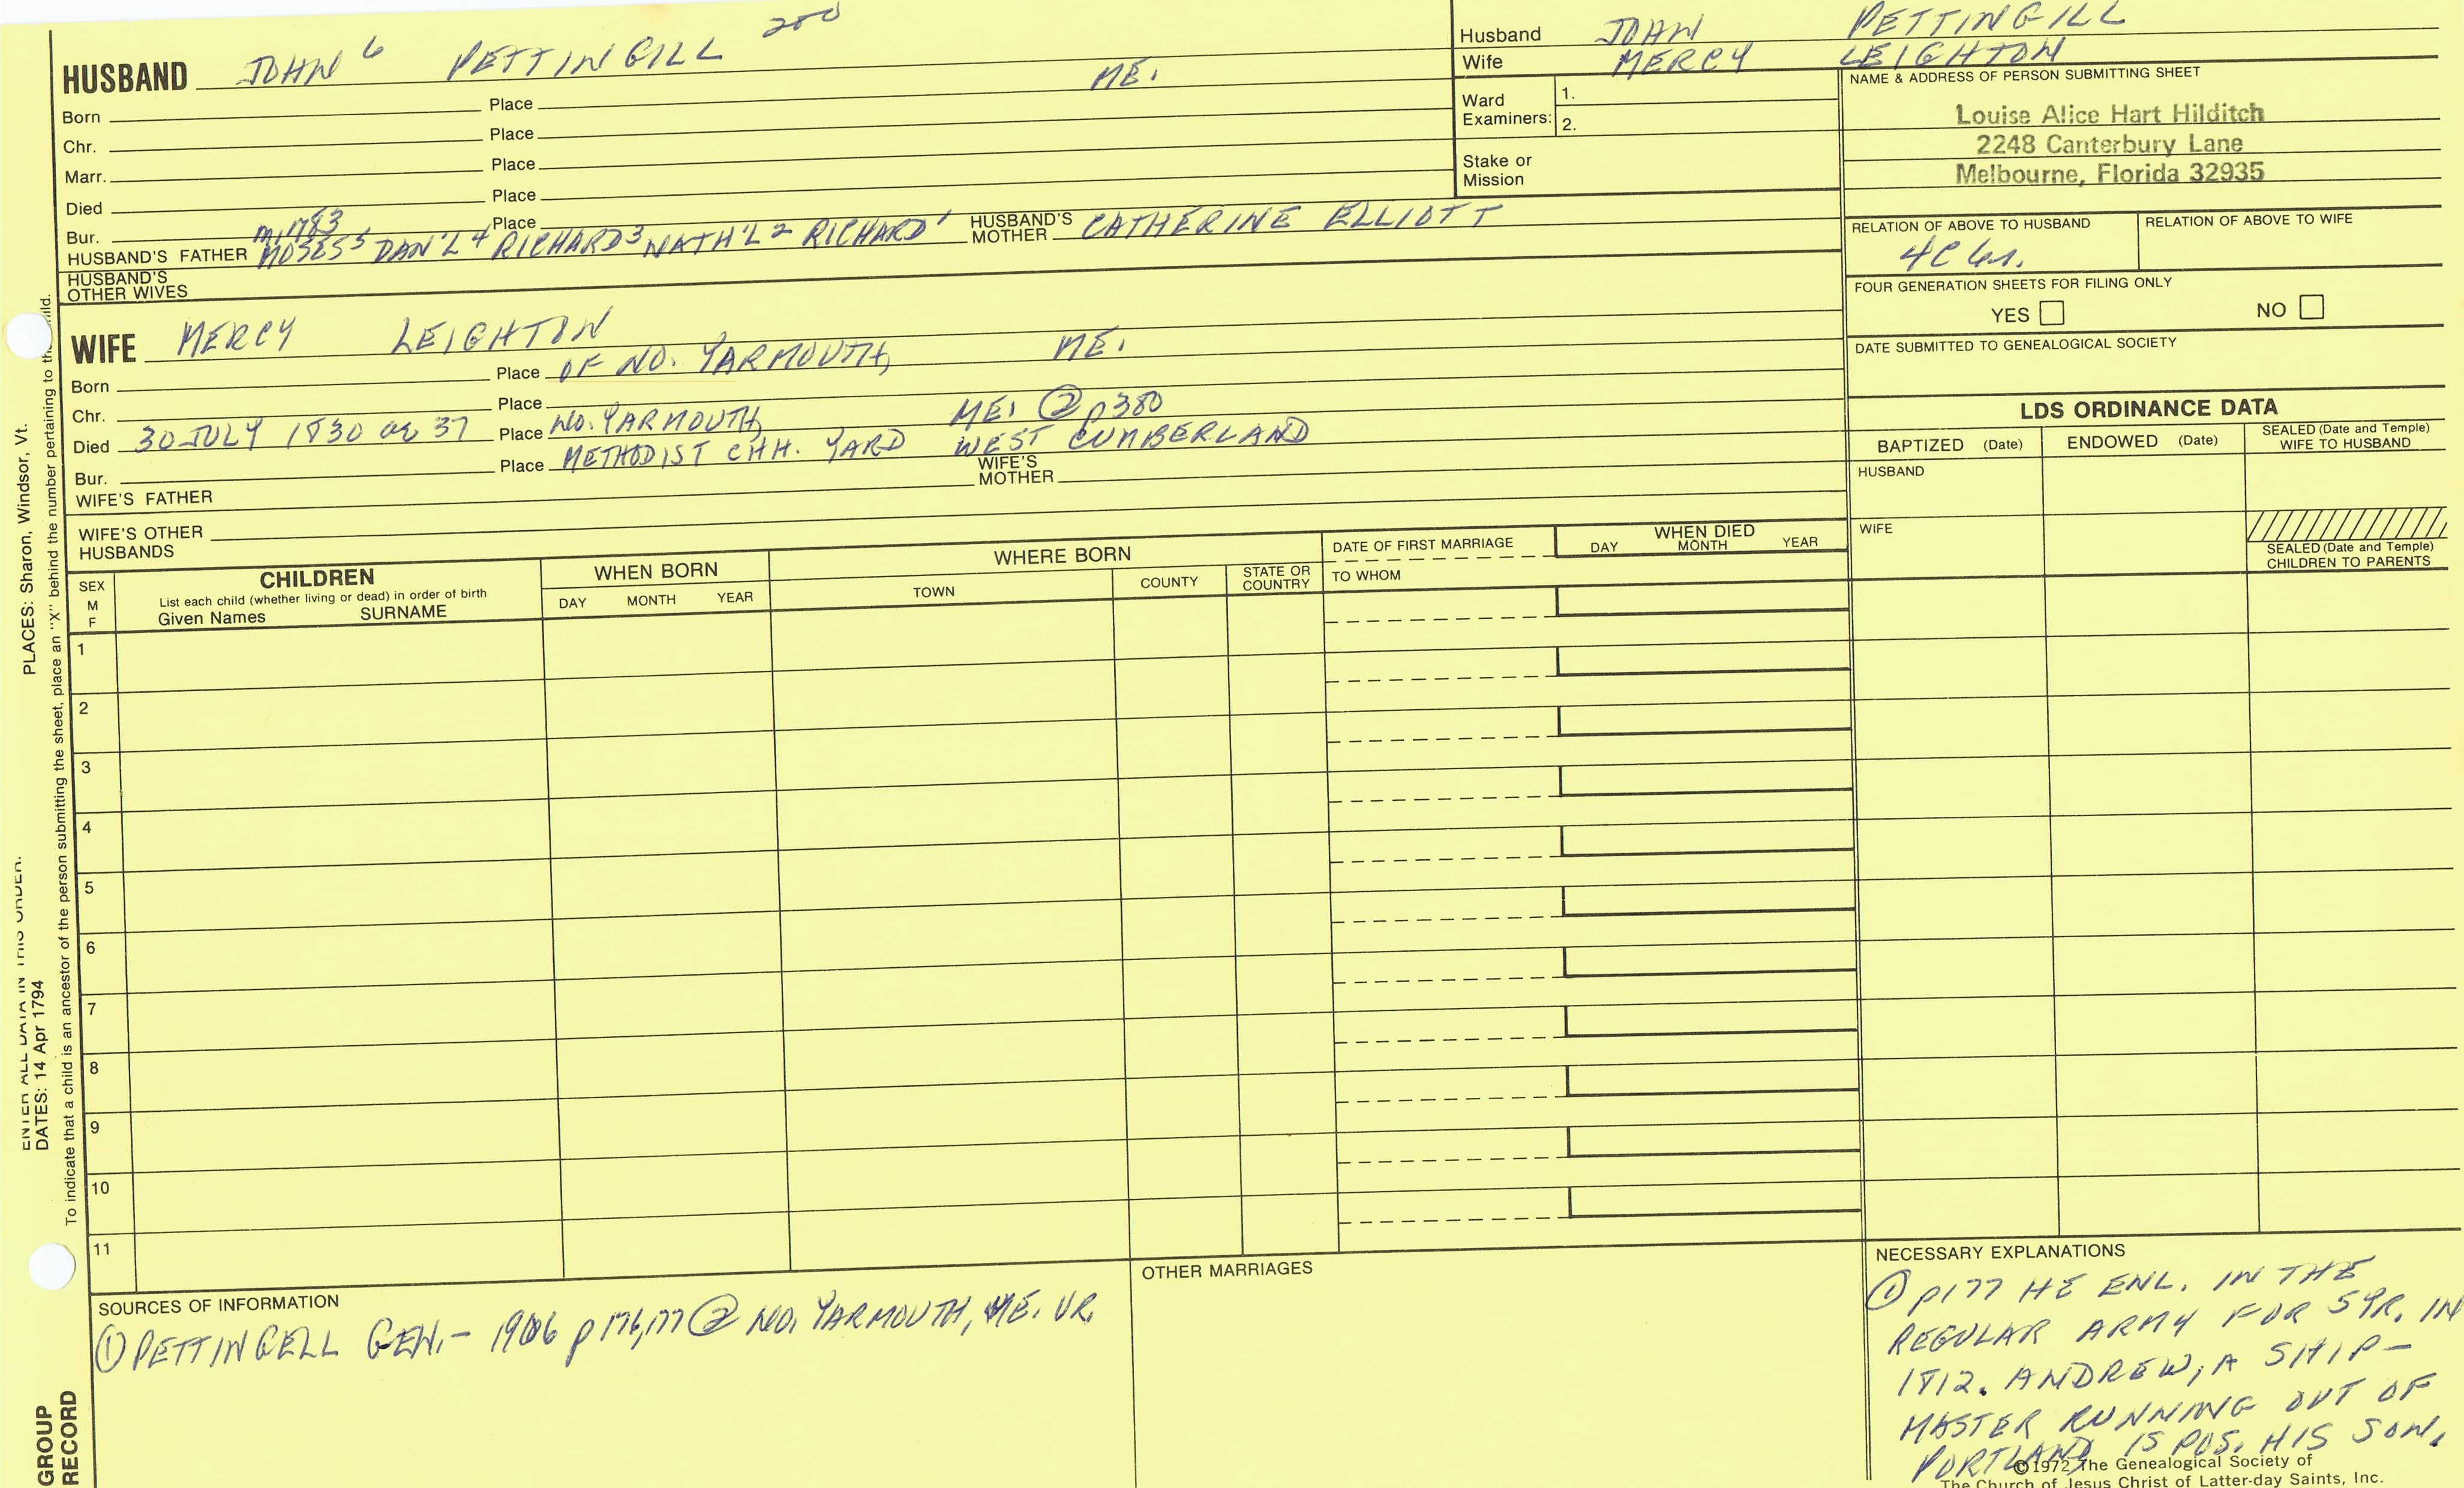 HUSBAND JOHN 6 PETTINGILL 200
Born Place ME.
Chr. Place
Marr. Place
Died Place
Bur. Place
m. 1783
HUSBAND'S FATHER MOSES 5 DAN'L 4 RICHARD 3 NATH'L 2 RICHARD 1 HUSBAND'S MOTHER CATHERINE ELLIOTT
HUSBAND'S OTHER WIVES
WIFE MERCY LEIGHTON
Born Place OF NO. YARMOUTH, ME.
Chr. Place
Died 30 JULY 1830 ae 37 Place NO. YARMOUTH, ME. ② p380
Bur. Place METHODIST CHH. YARD WEST CUMBERLAND
WIFE'S FATHER WIFE'S MOTHER
WIFE'S OTHER HUSBANDS
Husband JOHN PETTINGILL
Wife MERCY LEIGHTON
Ward Examiners: 1.
2.
Stake or Mission
NAME & ADDRESS OF PERSON SUBMITTING SHEET
Louise Alice Hart Hilditch
2248 Canterbury Lane
Melbourne, Florida 32935
RELATION OF ABOVE TO HUSBAND RELATION OF ABOVE TO WIFE
4C 6r.
FOUR GENERATION SHEETS FOR FILING ONLY
YES NO
DATE SUBMITTED TO GENEALOGICAL SOCIETY
LDS ORDINANCE DATA
BAPTIZED (Date) ENDOWED (Date) SEALED (Date and Temple) WIFE TO HUSBAND
HUSBAND
WIFE
SEALED (Date and Temple) CHILDREN TO PARENTS
SEX M F
CHILDREN
List each child (whether living or dead) in order of birth
Given Names SURNAME
WHEN BORN
DAY MONTH YEAR
WHERE BORN
TOWN COUNTY STATE OR COUNTRY
DATE OF FIRST MARRIAGE
TO WHOM
WHEN DIED
DAY MONTH YEAR
1
2
3
4
5
6
7
8
9
10
11
SOURCES OF INFORMATION
① PETTINGELL GEN. - 1906 p 176,177 ② NO. YARMOUTH, ME. VR.
OTHER MARRIAGES
NECESSARY EXPLANATIONS
① p177 HE ENL. IN THE
REGULAR ARMY FOR 5 YR. IN
1812. ANDREW, A SHIP-
MASTER RUNNING OUT OF
PORTLAND IS POS. HIS SON.
©1972 The Genealogical Society of
The Church of Jesus Christ of Latter-day Saints, Inc.
PLACES: Sharon, Windsor, Vt.
ENTER ALL DATA IN THIS ORDER.
DATES: 14 Apr 1794
To indicate that a child is an ancestor of the person submitting the sheet, place an "X" behind the number pertaining to the child.
GROUP
RECORD